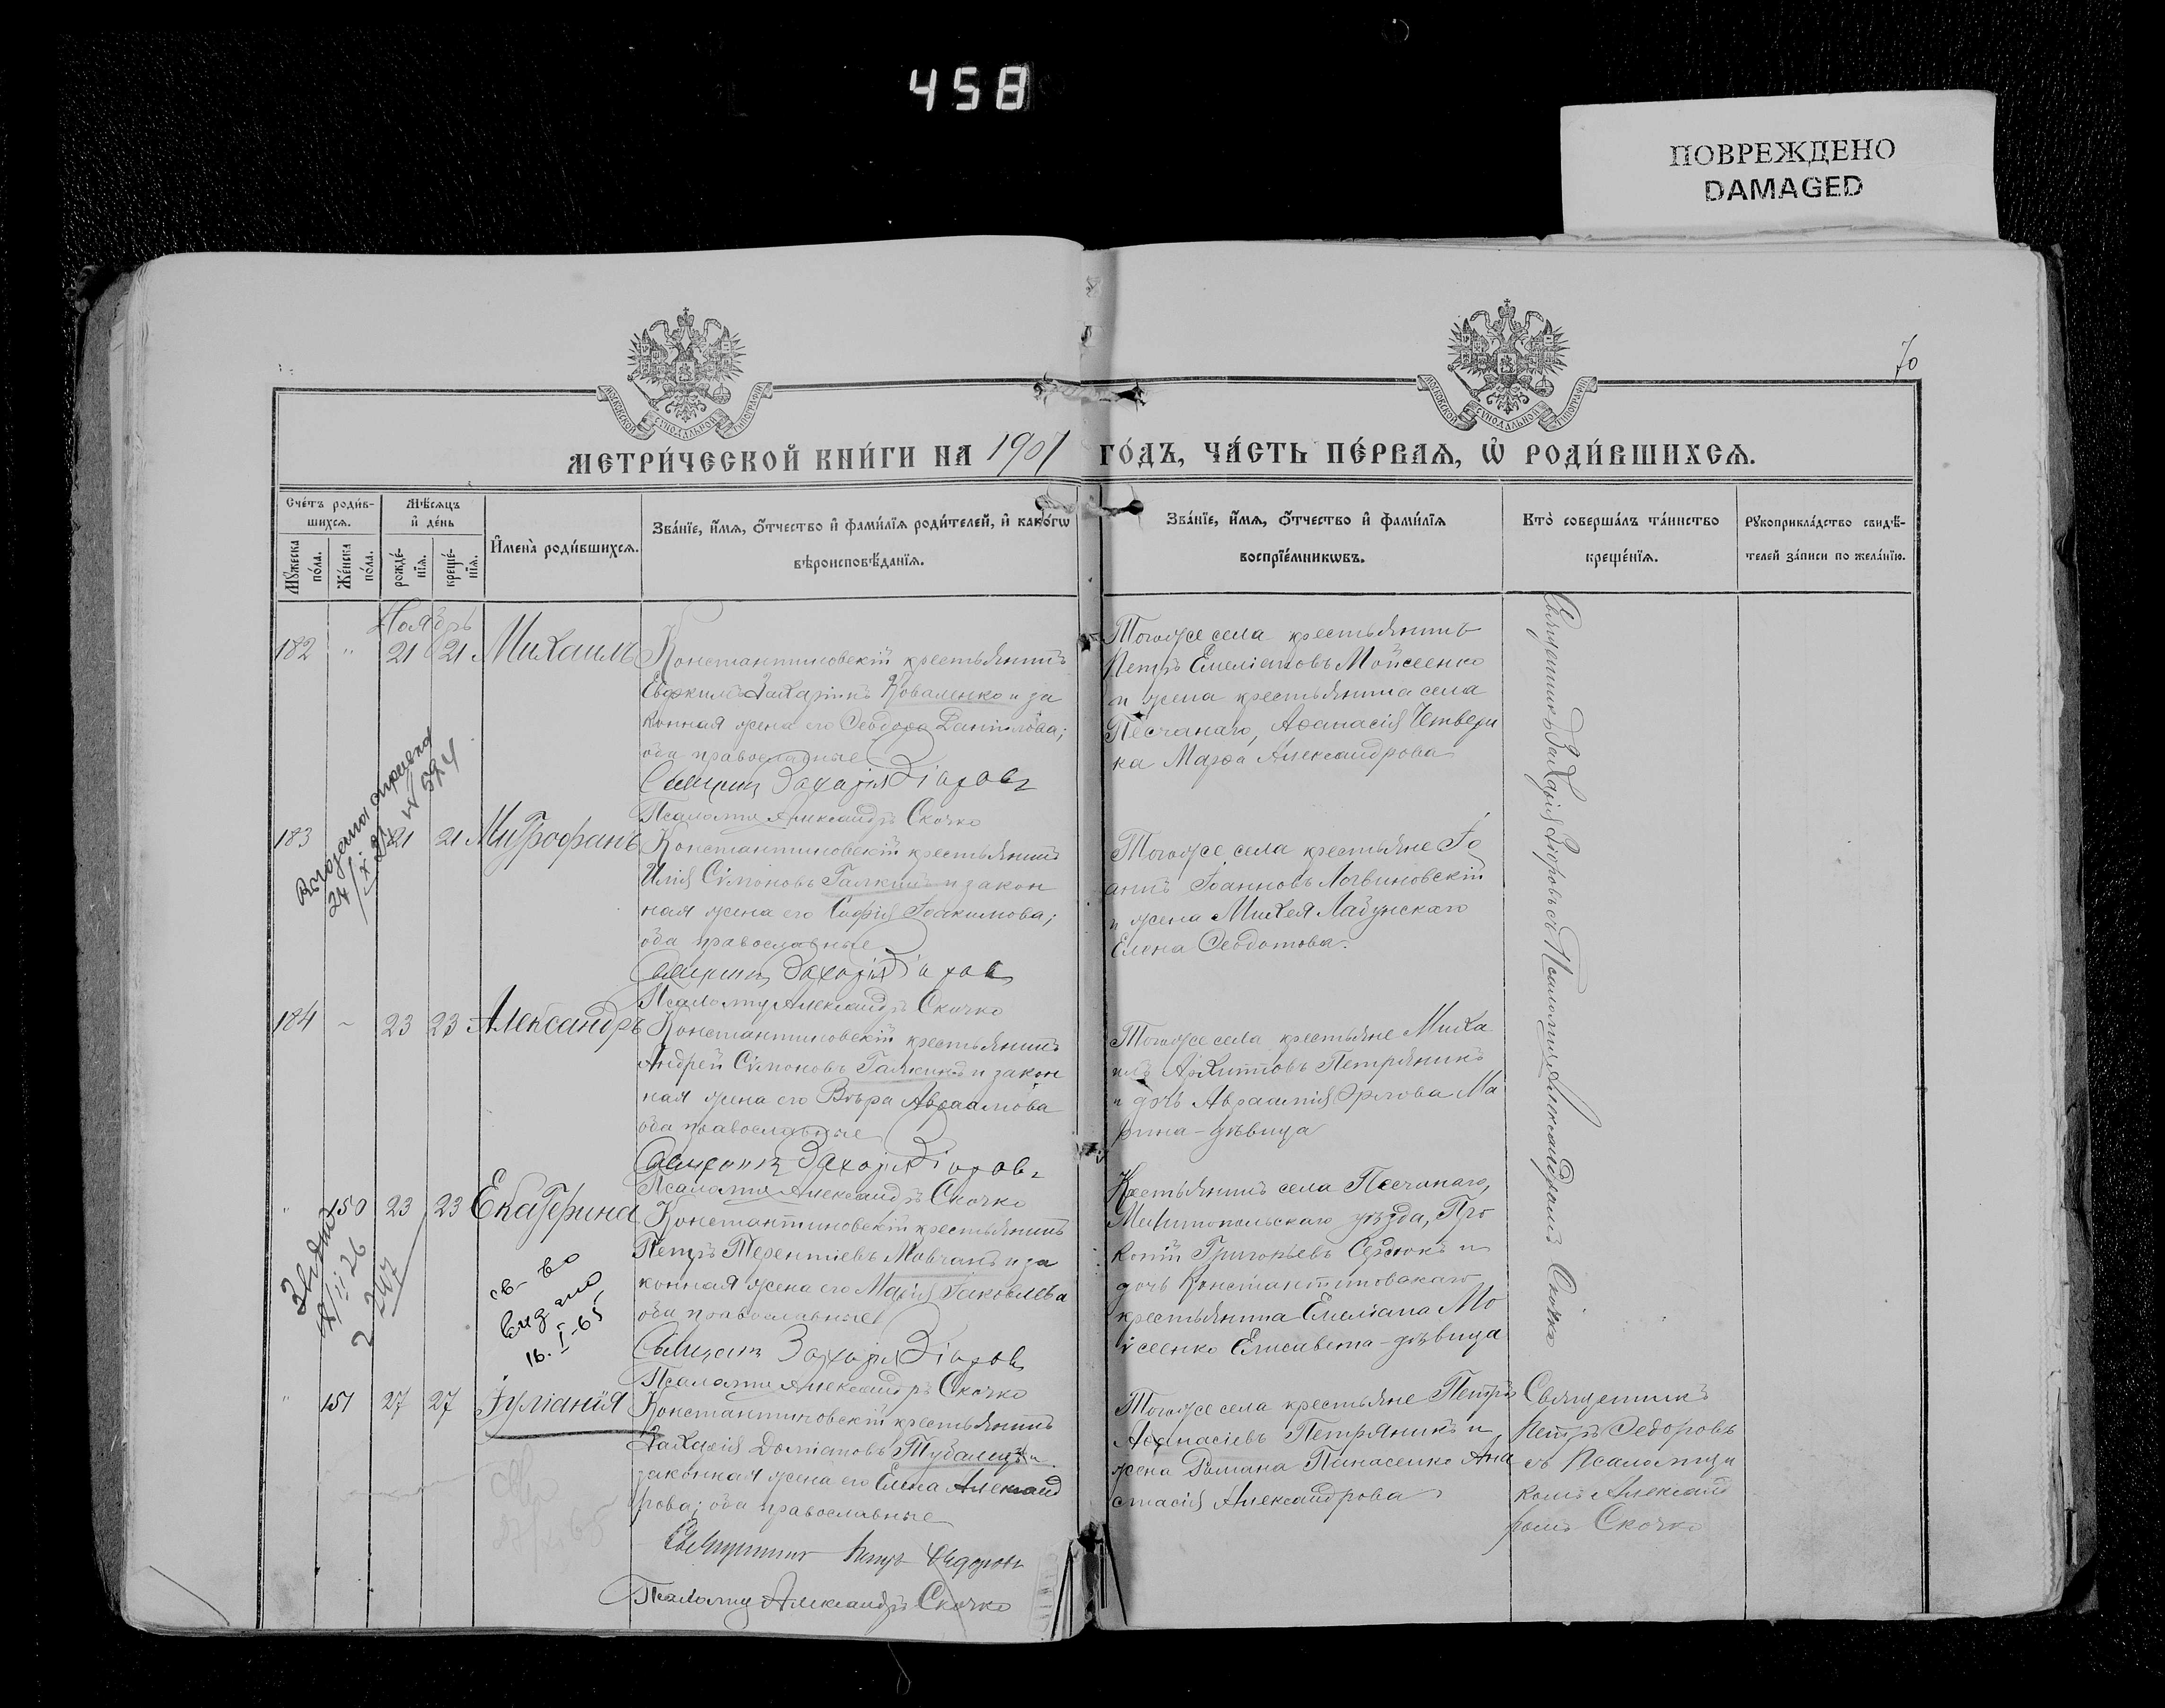 458
ПОВРЕЖДЕНО
DAMAGED
70
МОСКОВСКОЙ СѴНОДАЛЬНОЙ ТИПОГРАФІИ
МОСКОВСКОЙ СѴНОДАЛЬНОЙ ТИПОГРАФІИ
МЕТРИ́ЧЕСКОЙ КНИ́ГИ НА 1907 ГО́ДЪ, ЧА́СТЬ ПЕ́РВАѦ, Ѡ҆ РОДИ́ВШИХСѦ.
Сче́тъ роди́в-
шихсѧ.
Мꙋ́жеска по́ла.
Же́нска по́ла.
Мѣ́сѧцъ и҆ де́нь
рожде́-
нїѧ.
креще́-
нїѧ.
И҆мена̀ роди́вшихсѧ.
Зва́нїе, и҆́мѧ, ѻ҆́тчество и҆ фами́лїѧ роди́телей, и҆ како́гѡ
вѣроисповѣ́данїѧ.
Зва́нїе, и҆́мѧ, ѻ҆́тчество и҆ фами́лїѧ
воспрїе́мникѡвъ.
Кто̀ соверша́лъ та́инство
креще́нїѧ.
Рꙋкоприкла́дство свидѣ́-
телей за́писи по жела́нїю.
Ноябрь
182 " 21 21 Михаилъ
Константиновскій крестьянинъ
Евфимъ Захаріинъ Коваленко и за
конная жена его Ѳеодора Даніилова;
оба православные
Священ Захарія Діаровъ
Псаломщ Александръ Скочко
Тогоже села крестьянинъ
Петръ Емеліановъ Мойсеенко
и жена крестьянина села
Песчанаго, Аѳанасія Четвери
ка Марѳа Александрова
Священникъ Захарія Діаровъ съ Псаломщ Александромъ Скочко
183 21 21 Митрофанъ
Константиновскій крестьянинъ
Илія Сѵмоновъ Галкинъ и закон
ная жена его Софія Іоакимова;
оба православные
Священ Захарія Діаровъ
Псаломщ Александръ Скочко
Выдана справка
24/XI 21 № 594
Тогоже села крестьяне Іо
аннъ Іоанновъ Логвиновскій
и жена Михея Ладунскаго
Елена Ѳеодотова.
184 " 23 23 Александръ
Константиновскій крестьянинъ
Андрей Сѵмоновъ Галкинъ и закон
ная жена его Вѣра Авраамова
оба православные
Священ Захарія Діаровъ
Псаломщ Александръ Скочко
Тогоже села крестьяне Миха
илъ Архиповъ Петряникъ
и дочь Авраамія Орлова Ма
рина - дѣвица
" 150 23 23 Екатерина
Константиновскій крестьянинъ
Петръ Терентіевъ Мовчанъ и за
конная жена его Марія Іаковлева
оба православные
Священ Захарія Діаровъ
Псаломщ Александръ Скочко
247
св-во
выдано
16.I-65
Крестьянинъ села Песчанаго,
Мелитопольскаго уѣзда, Про
копій Григорьевъ Сердюкъ и
дочь Константиновскаго
крестьянина Емеліана Мо
ѵсеенко Елисавета - дѣвица
" 151 27 27 Іуліанія
Константиновскій крестьянинъ
Захарія Даміановъ Тубалецъ и
законная жена его Елена Александ
рова; оба православные
Священникъ Петръ Ѳедоровъ
Псаломщ Александръ Скочко
Тогоже села крестьяне Петръ
Аѳанасіевъ Петряникъ и
жена Романа Панасенко Ана
стасія Александрова
Священникъ
Петръ Ѳедоровъ
съ Псаломщи
комъ Александ
ромъ Скочко